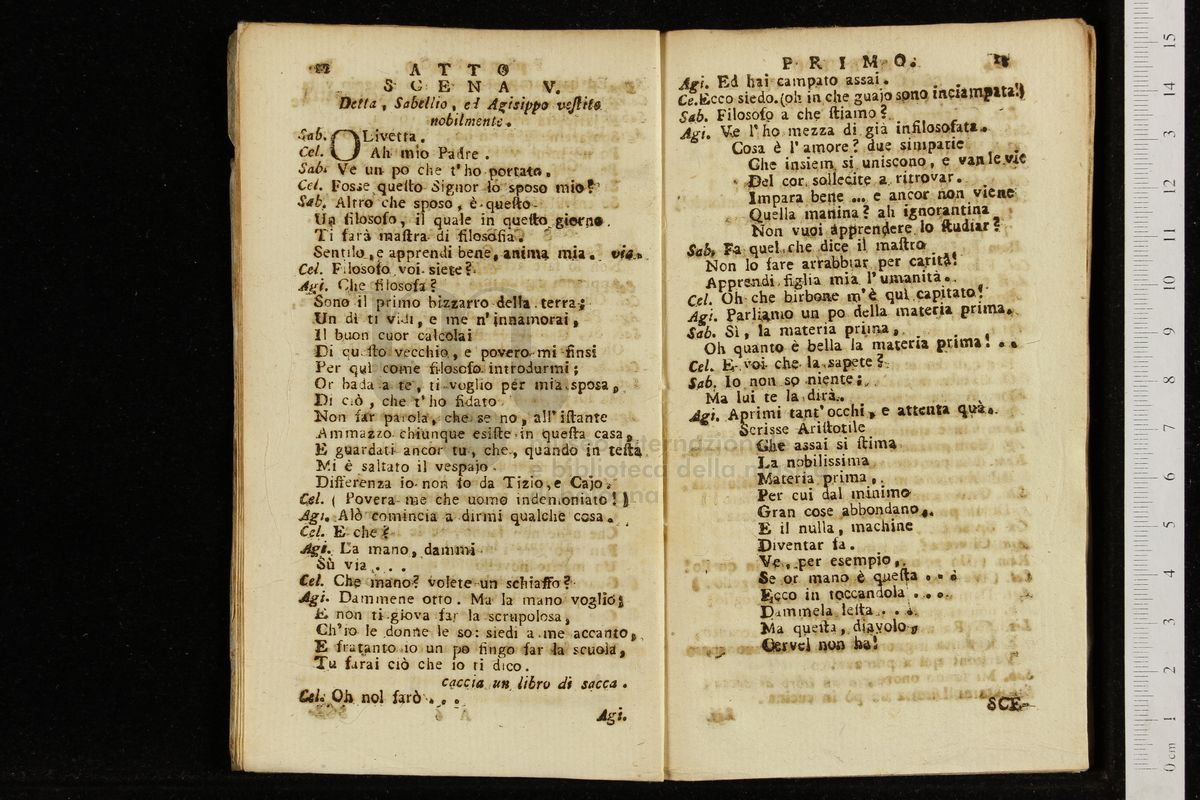 ATTO
SCENA V.
Detta, Sabellio, ed Agisippo veſtito
nobilmente.
Sab. OLivetta.
Cel. Ah mio Padre.
Sab. Ve un po che t'ho portato.
Cel. Foſse queſto Signor lo sposo mio?
Sab. Altro che sposo, è queſto
Un filosofo, il quale in queſto giorno
Ti farà maſtra di filosofia.
Sentilo, e apprendi bene, anima mia. via.
Cel. Filosofo voi siete?
Agi. Che filosofa?
Sono il primo bizzarro della terra;
Un dì ti vidi, e me n'innamorai,
Il buon cuor calcolai
Di queſto vecchio, e povero mi finsi
Per quì come filosofo introdurmi;
Or bada a te, ti voglio per mia sposa,
Di ciò, che t'ho fidato
Non far parola, che se no, all'iſtante
Ammazzo chiunque esiſte in queſta casa,
E guardati ancor tu, che, quando in teſta
Mi è saltato il vespajo
Differenza io non fo da Tizio, e Cajo.
Cel. ( Povera me che uomo indemoniato! )
Agi. Alò comincia a dirmi qualche cosa.
Cel. E che?
Agi. La mano, dammi
Sù via . . .
Cel. Che mano? volete un schiaffo?
Agi. Dammene otto. Ma la mano voglio;
E non ti giova far la scrupolosa,
Ch'io le donne le so: siedi a me accanto,
E fratanto io un po fingo far la scuola,
Tu farai ciò che io ti dico.
caccia un libro di sacca.
Cel. Oh nol farò . . .
A 6
Agi.
PRIMO.
Agi. Ed hai campato assai.
Ce. Ecco siedo. (oh in che guajo sono inciampata!)
Sab. Filosofo a che ſtiamo?
Agi. Ve l'ho mezza di già infilosofata.
Cosa è l'amore? due simpatie
Che insiem si uniscono, e van le vie
Del cor sollecite a ritrovar.
Impara bene ... e ancor non viene
Quella manina? ah ignorantina
Non vuoi apprendere lo ſtudiar?
Sab. Fa quel che dice il maſtro
Non lo fare arrabbiar per carità!
Apprendi figlia mia l'umanità.
Cel. Oh che birbone m'è quì capitato!
Agi. Parliamo un po della materia prima.
Sab. Sì, la materia prima,
Oh quanto è bella la materia prima! . .
Cel. E voi che la sapete?
Sab. Io non so niente;
Ma lui te la dirà.
Agi. Aprimi tant'occhi, e attenta quà.
Scrisse Ariſtotile
Che assai si ſtima
La nobilissima
Materia prima,
Per cui dal minimo
Gran cose abbondano,
E il nulla, machine
Diventar fa.
Ve, per esempio,
Se or mano è queſta . . .
Ecco in toccandola . . .
Dammela leſta . . .
Ma queſta, diavolo,
Cervel non ha!
SCE-